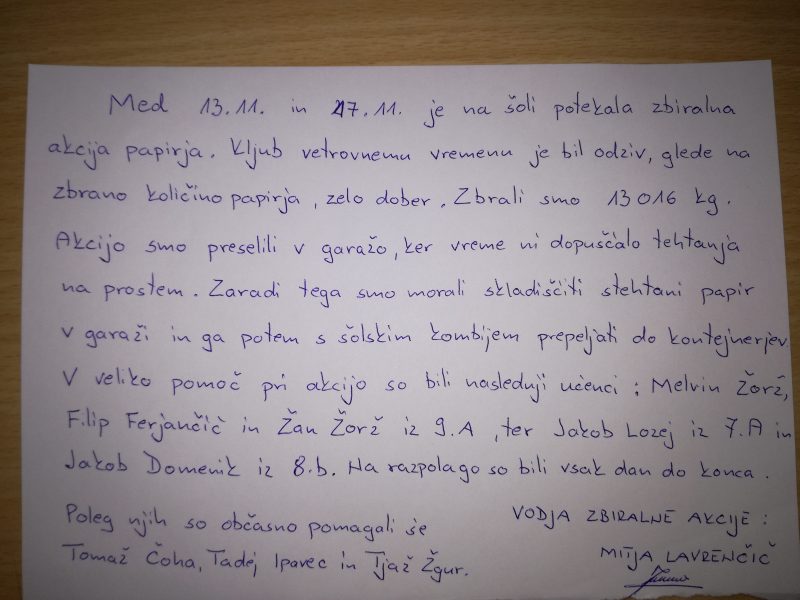 Med 13.11. in 17.11. je na šoli potekala zbiralna
akcija papirja. Kljub vetrovnemu vremenu je bil odziv, glede na
zbrano količino papirja, zelo dober. Zbrali smo 13 016 kg.
Akcijo smo preselili v garažo, ker vreme ni dopuščalo tehtanja
na prostem. Zaradi tega smo morali skladiščiti stehtani papir
v garaži in ga potem s šolskim kombijem prepeljati do kontejnerjev.
V veliko pomoč pri akcijo so bili nasleduji učenci : Melvin Žorž,
Filip Ferjančič in Žan Žorž iz 9.A, ter Jakob Lozej iz 7.A in
Jakob Domenik iz 8.b. Na razpolago so bili vsak dan do konca.
Poleg njih so občasno pomagali še
Tomaž Čoha, Tadej Ipavec in Tjaž Žgur.
VODJA ZBIRALNE AKCIJE :
MITJA LAVRENČIČ